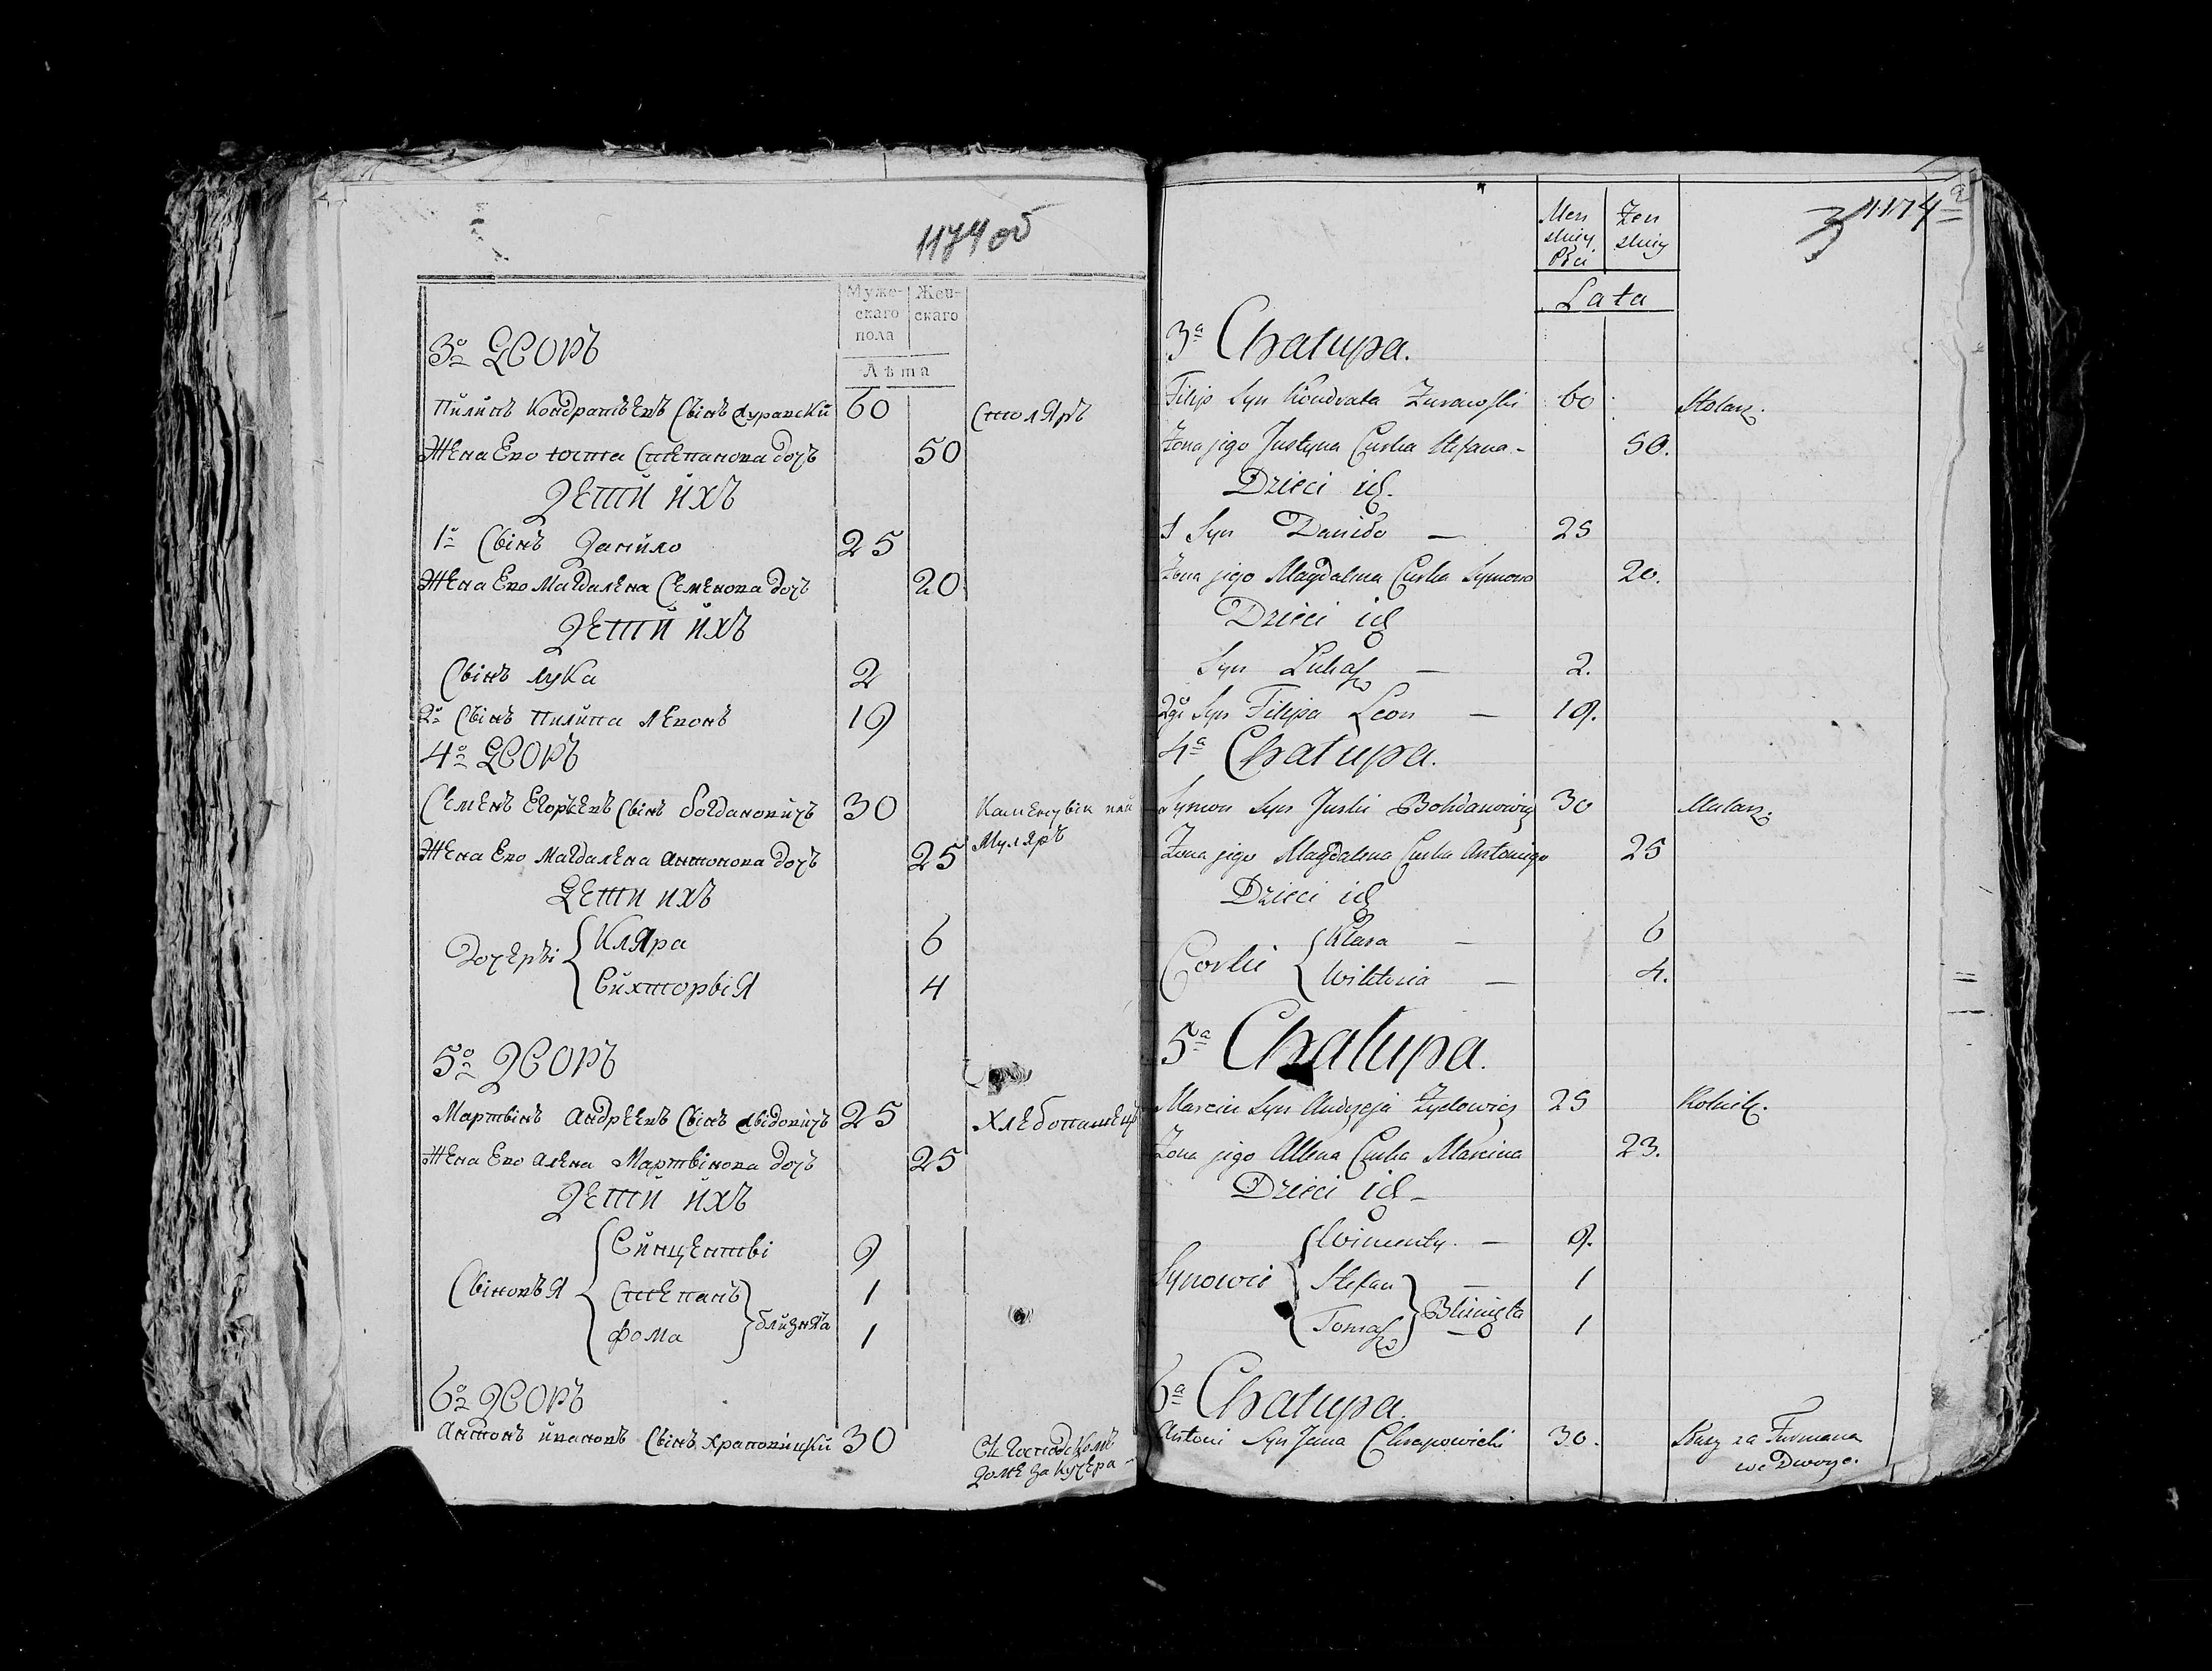 1174 об
Муже-
скаго
пола
Жен-
скаго
Лѣта
3о ДВОРЪ
Пилипъ Кондратьевъ Сынъ Журавски 60 Столяръ
Жена Ево Юстта Степанова дочъ 50
Дети ихъ
1о Сынъ Данило 25
Жена Ево Магдалена Семенова дочъ 20
Дети ихъ
Сынъ лука 2
2о Сынъ Пилипа левонъ 19
4о ДВОРЪ
Семенъ Егорьевъ Сынъ богдановичъ 30
Муляръ
Жена Ево Магдалена антонова дочъ 25
Дети ихъ
Дочеры
Кляра 6
Вихторыя 4
5о ДВОРЪ
Мартынъ андреевъ Сынъ жыдовичъ 25 Хлебопашецъ
Жена Ево алена Мартынова дочъ 25
Дети ихъ
Сыновья
Винценты 9
Степанъ 1
фома 1
близнята
6о ДВОРЪ
Антонъ ивановъ Сынъ храповицки 30
В Господскомъ
доме за кучера
1174 a
Men
skiey
Płci
Zen
skiey
Lata
3a Chałupa.
Filip Syn Kondrata Zurawski 60 Stolarz.
Zona jego Justyna Curka Stefana - 50.
Dzieci ich.
1 Syn Daniło — 25
Zona jego Magdalena Curka Symona 20.
Dzieci ich
Syn Lukasz — 2.
2gi Syn Filipa Leon — 19.
4a Chałupa.
Symon Syn Jurki Bohdanowicz 30 Mularz.
Zona jego Magdalena Curka Antoniego 25
Dzieci ich
Corki
Klara — 6
Wiktoria — 4.
5a Chałupa.
Marcin Syn Andrzeja Zydowicz 25 Rolnik.
Zona jego Allena Curka Marcina 23.
Dzieci ich -
Synowie
Wincenty. — 9.
Stefan — 1
Tomasz 1
Bliznięta
6a Chałupa.
Antoni Syn Jana Chrapowicki 30. Służy za Furmana
we Dworze.